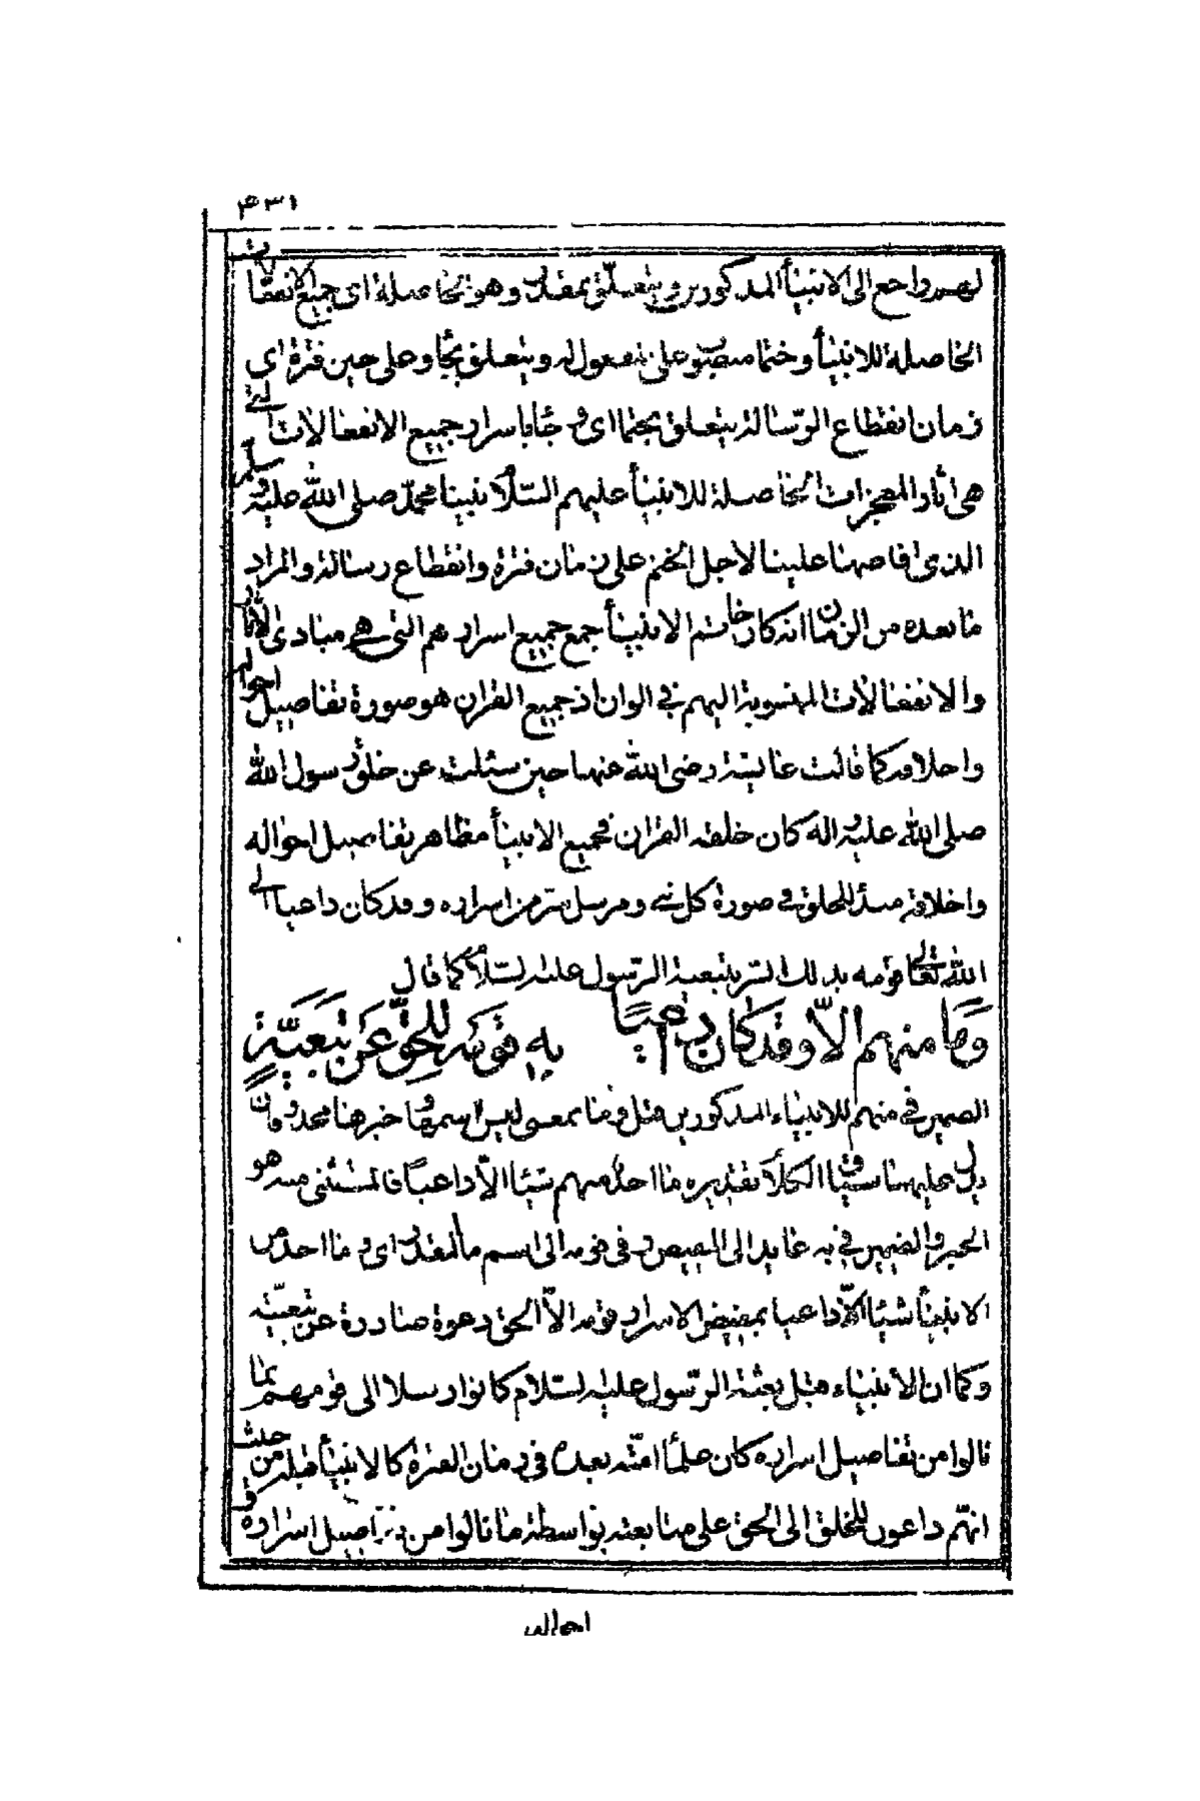 ٤٣١
لهم راجع الى الانبيأ المذكورين ويتعلّق بمقدّر وهو الحاصلة اى جميع الانفعالات
الحاصلة للانبيأ وختما منصوب على مفعول له ويتعلق بجا وعلى حين فترة اى
زمان انقطاع الرّسالة يتعلق بختما اى و جٓا باسرار جميع الانفعالات الّتى
هى اثار المعجزات الحاصلة للانبيأ عليهم السّلام نبينا محمّد صلى الله عليه وسلّم
الذى افاضها علينا لاجل الختم على زمان فترة وانقطاع رسالة والمراد
ما بعده من الزمان انه كان خاتم الانبيأ جمع جميع اسرارهم التى هى مبادى الاثار
والانفعالات المنسوبة اليهم فى الوان اذ جميع القران هو صورة تفاصيل احواله
واخلاقه كما قالت عايشة رضى الله عنها حين سئلت عن خلق رسول الله
صلى الله عليه واله كان خلقه القران فجميع الانبيأ مظاهر تفاصيل احواله
واخلاقه للخلق فى صورة كل نبى ومرسل بسّر من اسراره وقد كان داعيا الى
الله تعالى قومه بذلك السّر بتبعية الرّسول عليه السّلام كما قال
وَمَا منهم الاّ وقد كَان داعيًا به قومَه للحَقّ عَن تبَعَيّةٍ
الضمير فى منهم للانبياء المذكورين قبل وما بمعنى ليس اسمها و خبرها محذوفان
دل عليهما سياق الكلام تقديره ما احد منهم شيئا الاّ داعياً فالمستثنى منه هو
الخبر والضمير فى به عايد الى الفيض و فى قومه الى اسم ما المقدّر اى و ما احد من
الانبيأ شيئا الاّ داعيا بفيض الاسرار قومه الاّ الحق دعوة صادرة عن تبعيّته
وكما ان الانبياء قبل بعثة الرّسول عليه السّلام كانوا رسلا الى قومهم بما
نالوا من تفاصيل اسراره كان علمأ امّته بعده فى زمان الفترة كالانبيأ قبله من حيث
انهم داعون للخلق الى الحق على متابعته بواسطة ما نالوا من تفاصيل اسراره و
احواله